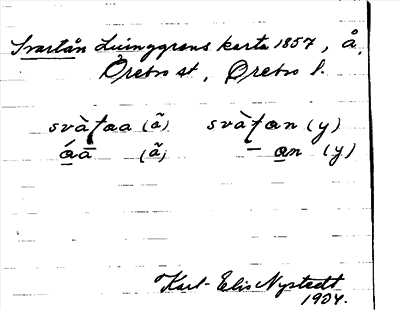 Svartån Ljunggrens karta 1857, å,
Örebro st, Örebro l.
svàʈaa (ã) svàʈan (y)
áā (ã) – an (y)
Karl-Elis Nystedt
1904.